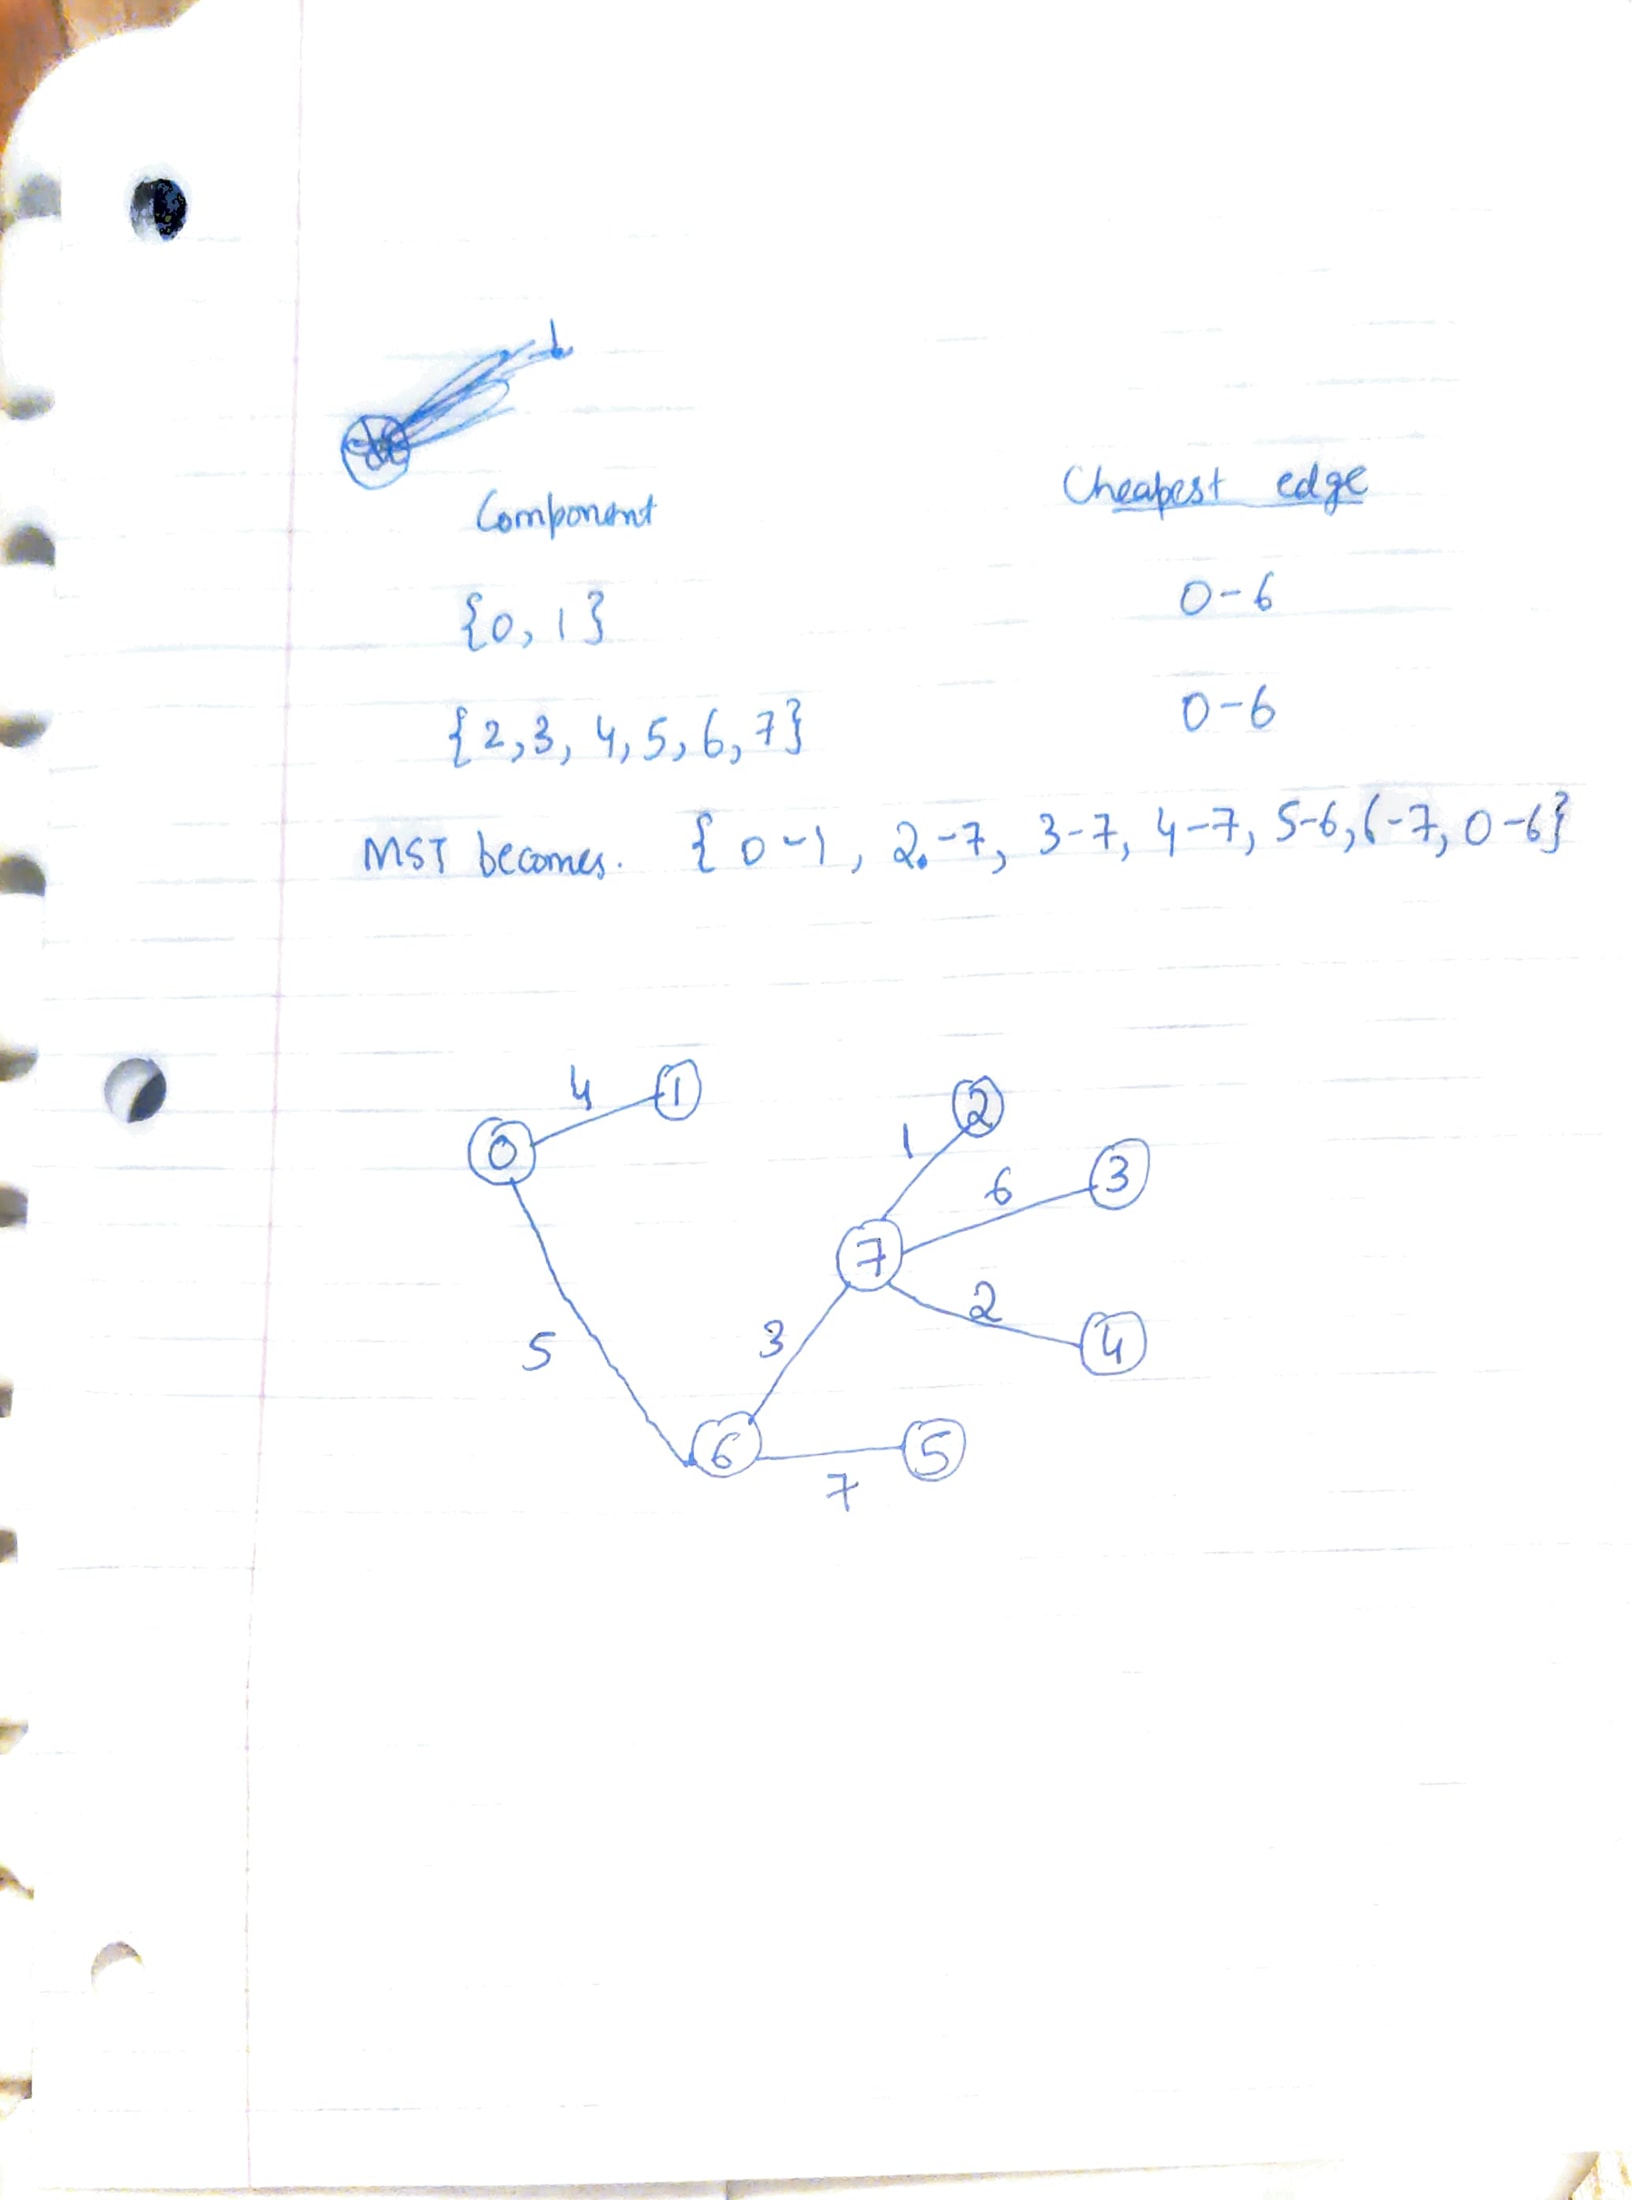 Component Cheapest edge
{0, 1} 0-6
{2,3, 4,5,6,7} 0-6
MST becomes. {0-1, 2-7, 3-7, 4-7, 5-6, 6-7, 0-6}
4 1
0
2
1
6 3
7
2
4
5 3
6 5
7